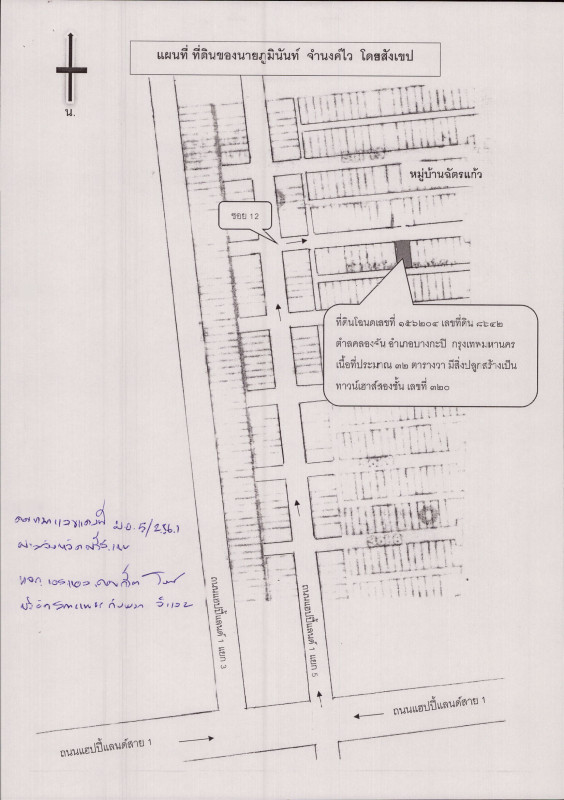 แผนที่ ที่ดินของนายภูมินันท์ จำนงค์ไว โดยสังเขป
น.
หมู่บ้านฉัตรแก้ว
ซอย 12
ที่ดินโฉนดเลขที่ ๑๕๖๒๐๔ เลขที่ดิน ๘๖๔๒
ตำลคลองจั่น อำเภอบางกะปิ กรุงเทพมหานคร
เนื้อที่ประมาณ ๓๒ ตารางวา มีสิ่งปลูกสร้างเป็น
ทาวน์เฮาส์สองชั้น เลขที่ ๓๒๐
ถนนแฮปปี้แลนด์ 1 แยก 3
ถนนแฮปปี้แลนด์ 1 แยก 5
ถนนแฮปปี้แลนด์สาย 1
ถนนแฮปปี้แลนด์สาย 1